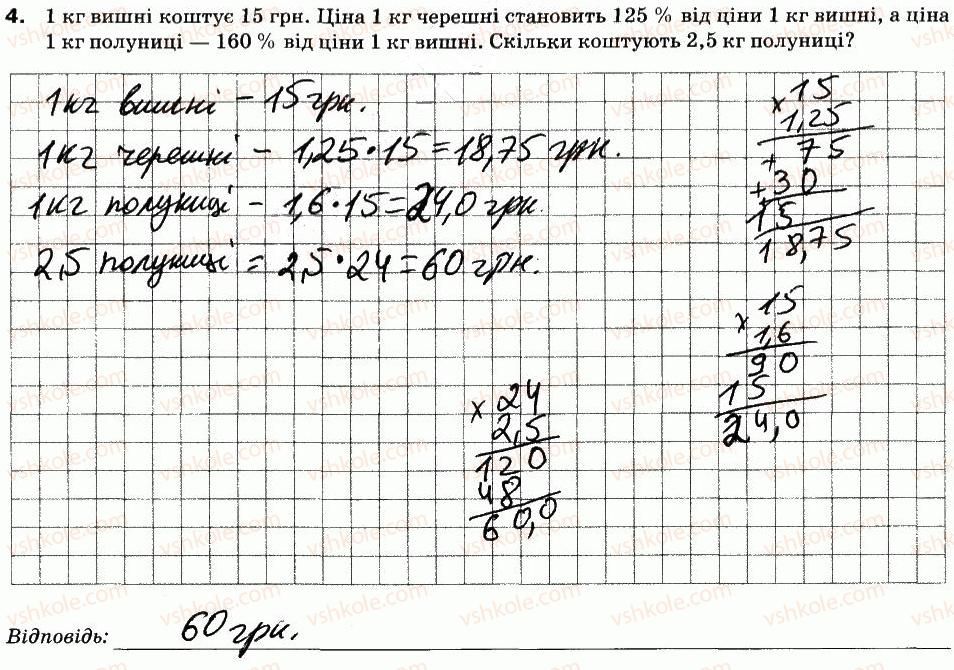 4. 1 кг вишні коштує 15 грн. Ціна 1 кг черешні становить 125 % від ціни 1 кг вишні, а ціна
1 кг полуниці — 160 % від ціни 1 кг вишні. Скільки коштують 2,5 кг полуниці?
1кг вишні - 15 грн.
1кг черешні - 1,25·15=18,75 грн.
1кг полуниці - 1,6·15=24,0 грн.
2,5 полуниці = 2,5·24=60 грн.
× 15
1,25
+ 75
+ 30
15
18,75
× 15
1,6
90
15
24,0
× 24
2,5
120
48
60,0
Відповідь: 60 грн.